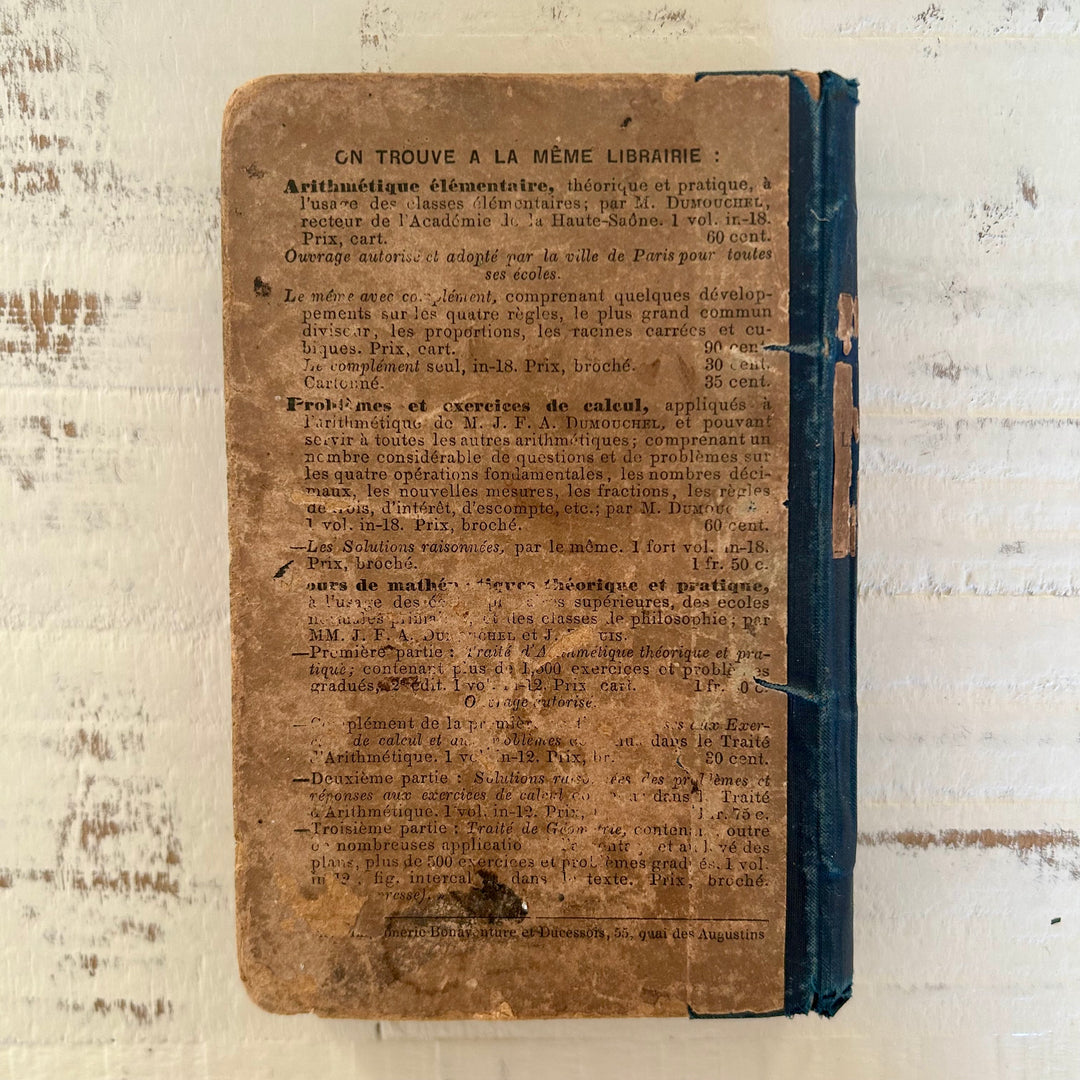 ON TROUVE A LA MÊME LIBRAIRIE :
Arithmétique élémentaire, théorique et pratique, à
l'usage des classes élémentaires; par M. DUMOUCHEL,
recteur de l'Académie de la Haute-Saône. 1 vol. in-18.
Prix, cart. 60 cent.
Ouvrage autorisé et adopté par la ville de Paris pour toutes
ses écoles.
Le même avec complément, comprenant quelques dévelop-
pements sur les quatre règles, le plus grand commun
diviseur, les proportions, les racines carrées et cu-
biques. Prix, cart. 90 cent.
Le complément seul, in-18. Prix, broché. 30 cent.
Cartonné. 35 cent.
Problèmes et exercices de calcul, appliqués à
l'arithmétique de M. J. F. A. DUMOUCHEL, et pouvant
servir à toutes les autres arithmétiques; comprenant un
nombre considérable de questions et de problèmes sur
les quatre opérations fondamentales, les nombres déci-
maux, les nouvelles mesures, les fractions, les règles
de trois, d'intérêt, d'escompte, etc.; par M.
1 vol. in-18. Prix, broché. 60 cent.
—Les Solutions raisonnées, par le même. 1 fort vol. in-18.
Prix, broché. 1 fr. 50 c.
de théorique et pratique,
à l'usage des supérieures, des écoles
des classes de philosophie; par
MM. J. F. A. DUMOUCHEL et J.
—Première partie : Traité d'Arithmétique théorique et pra-
tique; contenant plus de 1,500 exercices et problèmes
gradués, 2e édit. 1 vol. in-12. Prix cart. 1 fr.
Ouvrage autorisé
—Complément de la première aux Exer-
de calcul et aux problèmes dans le Traité
d'Arithmétique. 1 vol. in-12. Prix, br. 30 cent.
—Deuxième partie : Solutions raisonnées des problèmes et
réponses aux exercices de calcul dans le Traité
d'Arithmétique. 1 vol. in-12. Prix, 1 fr. 75 c.
—Troisième partie : Traité de Géométrie, contenant, outre
de nombreuses et au levé des
plans, plus de 500 exercices et problèmes gradués. 1 vol.
in-12, fig. intercal. dans le texte. Prix, broché.
Bonaventure et Ducessois, 55, quai des Augustins